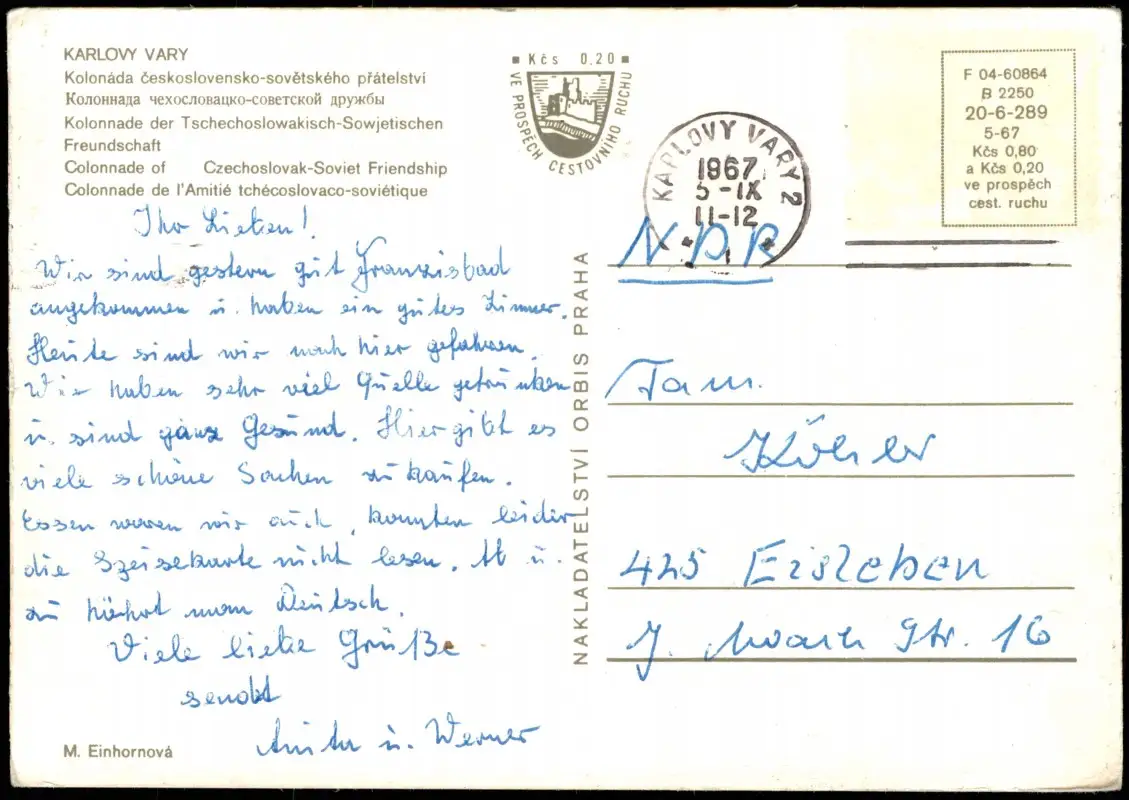 KARLOVY VARY
Kolonáda československo-sovětského přátelství
Колоннада чехословацко-советской дружбы
Kolonnade der Tschechoslowakisch-Sowjetischen
Freundschaft
Colonnade of Czechoslovak-Soviet Friendship
Colonnade de l'Amitié tchécoslovaco-soviétique
Ihr Lieben!
Wir sind gestern gut Franzisbad
angekommen u. haben ein gutes Zimmer.
Heute sind wir nach hier gefahren.
Wir haben sehr viel Quelle getrunken
u. sind ganz Gesund. Hier gibt es
viele schöne Sachen zu kaufen.
Essen waren wir auch, konnten leider
die Speisekarte nicht lesen. Ab u.
zu hört man Deutsch.
Viele liebe Grüße
sendet
Anita u. Werner
M. Einhornová
Kčs 0,20
VE PROSPĚCH CESTOVNÍHO RUCHU
NAKLADATELSTVÍ ORBIS PRAHA
KARLOVY VARY 2
1967
5-IX
11-12
F 04-60864
B 2250
20-6-289
5-67
Kčs 0,80
a Kčs 0,20
ve prospěch
cest. ruchu
NDR
Fam.
Köhler
425 Eisleben
J. Str. 16